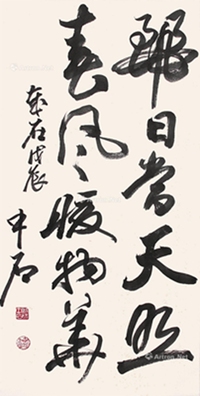 麗日當天照
春風暖物華
歲在戊辰
中石
Artron.Net